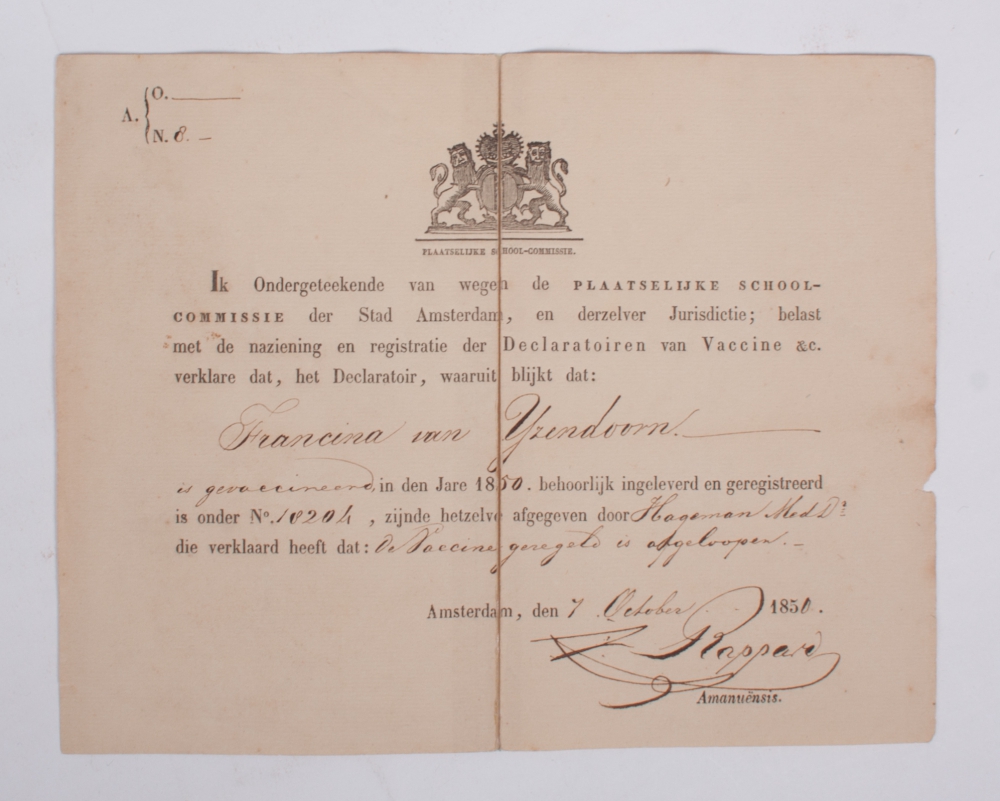 A. { O.
N. 8.
PLAATSELIJKE SCHOOL-COMMISSIE.
Ik Ondergeteekende van wegen de PLAATSELIJKE SCHOOL-
COMMISSIE der Stad Amsterdam, en derzelver Jurisdictie; belast
met de naziening en registratie der Declaratoiren van Vaccine &c.
verklare dat, het Declaratoir, waaruit blijkt dat:
Francina van Yzendoorn.
is gevaccineerd, in den Jare 1850. behoorlijk ingeleverd en geregistreerd
is onder No. 18204, zijnde hetzelve afgegeven door Hageman Med Dr
die verklaard heeft dat: de Vaccine geregeld is afgeloopen.
Amsterdam, den 7 October 1850.
F. Rappard
Amanuënsis.